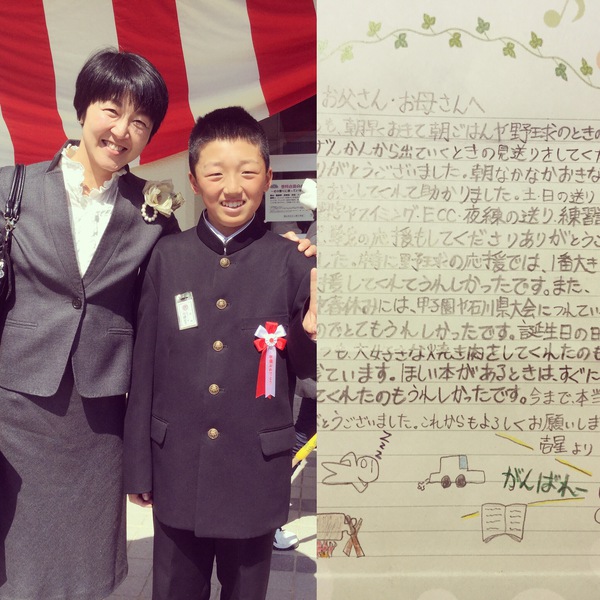 お父さん・お母さんへ
も、朝早くおきて朝ごはんや野球のときの
かんから出ていくときの見送りをしてくだ
りがとうございました。朝なかなかおきな
おこしてくれて助かりました。土日の送り
ECC・夜練の送り、練習
の応援もしてくださりありがとうご
した。特に野球の応援では、1番大き
援してくれてうれしかったです。また、
春休みには、甲子園や石川県大会につれてい
のでとてもうれしかったです。誕生日の日
も、大好きな焼き肉をしてくれたのも
ています。ほしい本があるときは、すぐに
てくれたのもうれしかったです。今まで、本当
とうございました。これからもよろしくお願いしま
壱星より
zzz
がんばれー